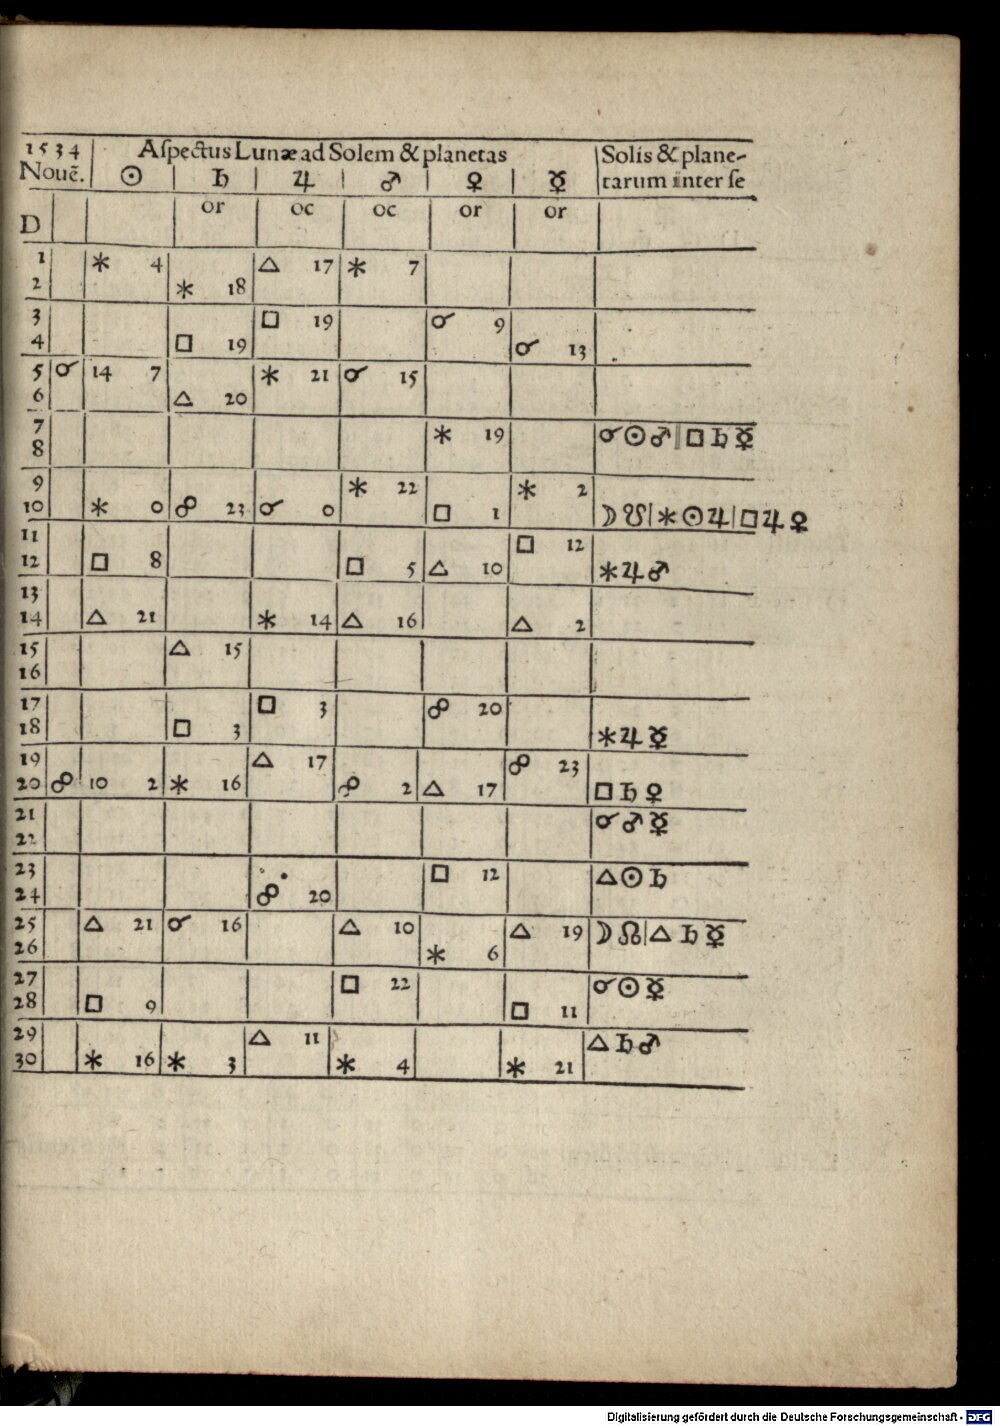 1534 Aſpectus Lunæ ad Solem & planetas Solis & plane-
Nouẽ. ☉ ♄ ♃ ♂ ♀ ☿ tarum inter ſe
D or oc oc or or
1 ⚹ 4 △ 17 ⚹ 7
2 ⚹ 18
3 □ 19 ☌ 9
4 □ 19 ☌ 13
5 ☌ 14 7 ⚹ 21 ☌ 15
6 △ 20
7 ⚹ 19 ☌☉♂|□♄☿
8
9 ⚹ 22 ⚹ 2
10 ⚹ 0 ☍ 23 ☌ 0 □ 1 ☽☋|⚹☉♃|□♃♀
11 □ 12
12 □ 8 □ 5 △ 10 ⚹♃♂
13
14 △ 21 ⚹ 14 △ 16 △ 2
15 △ 15
16
17 □ 3 ☍ 20
18 □ 3 ⚹♃☿
19 △ 17 ☍ 23
20 ☍ 10 2 ⚹ 16 ☍ 2 △ 17 □♄♀
21 ☌♂☿
22
23 □ 12 △☉♄
24 ☍ 20
25 △ 21 ☌ 16 △ 10 △ 19 ☽☊|△♄☿
26 ⚹ 6
27 □ 22 ☌☉☿
28 □ 9 □ 11
29 △ 11 △♄♂
30 ⚹ 16 ⚹ 3 ⚹ 4 ⚹ 21
Digitalisierung gefördert durch die Deutsche Forschungsgemeinschaft - DFG